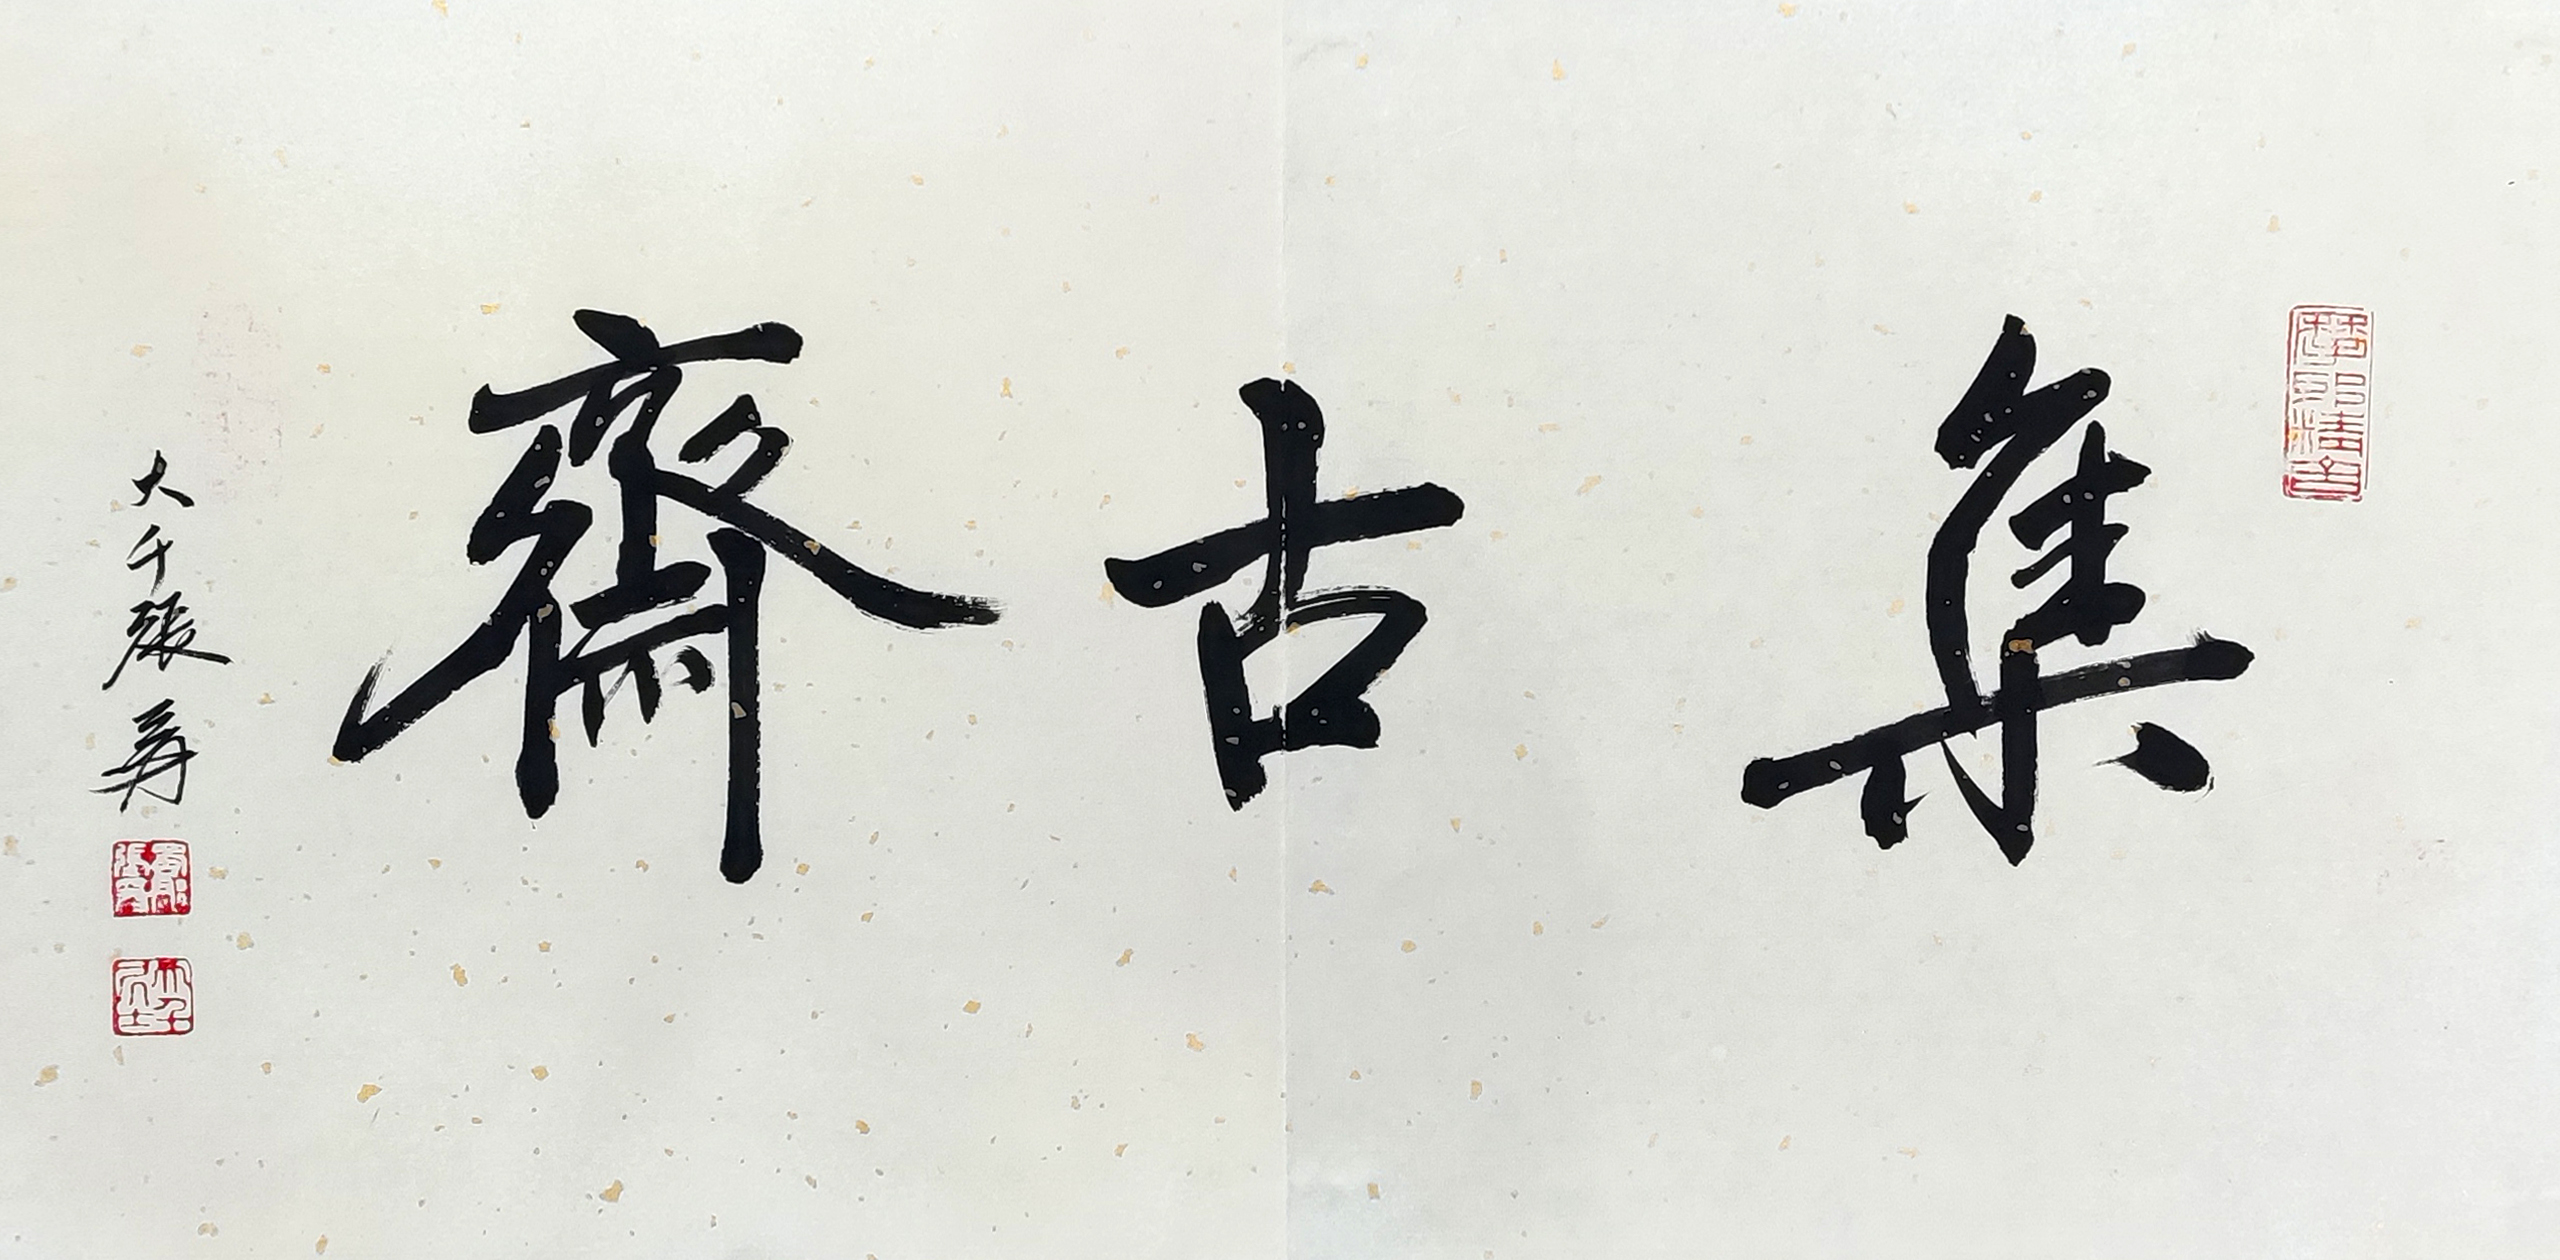 集古齋
大千張爰